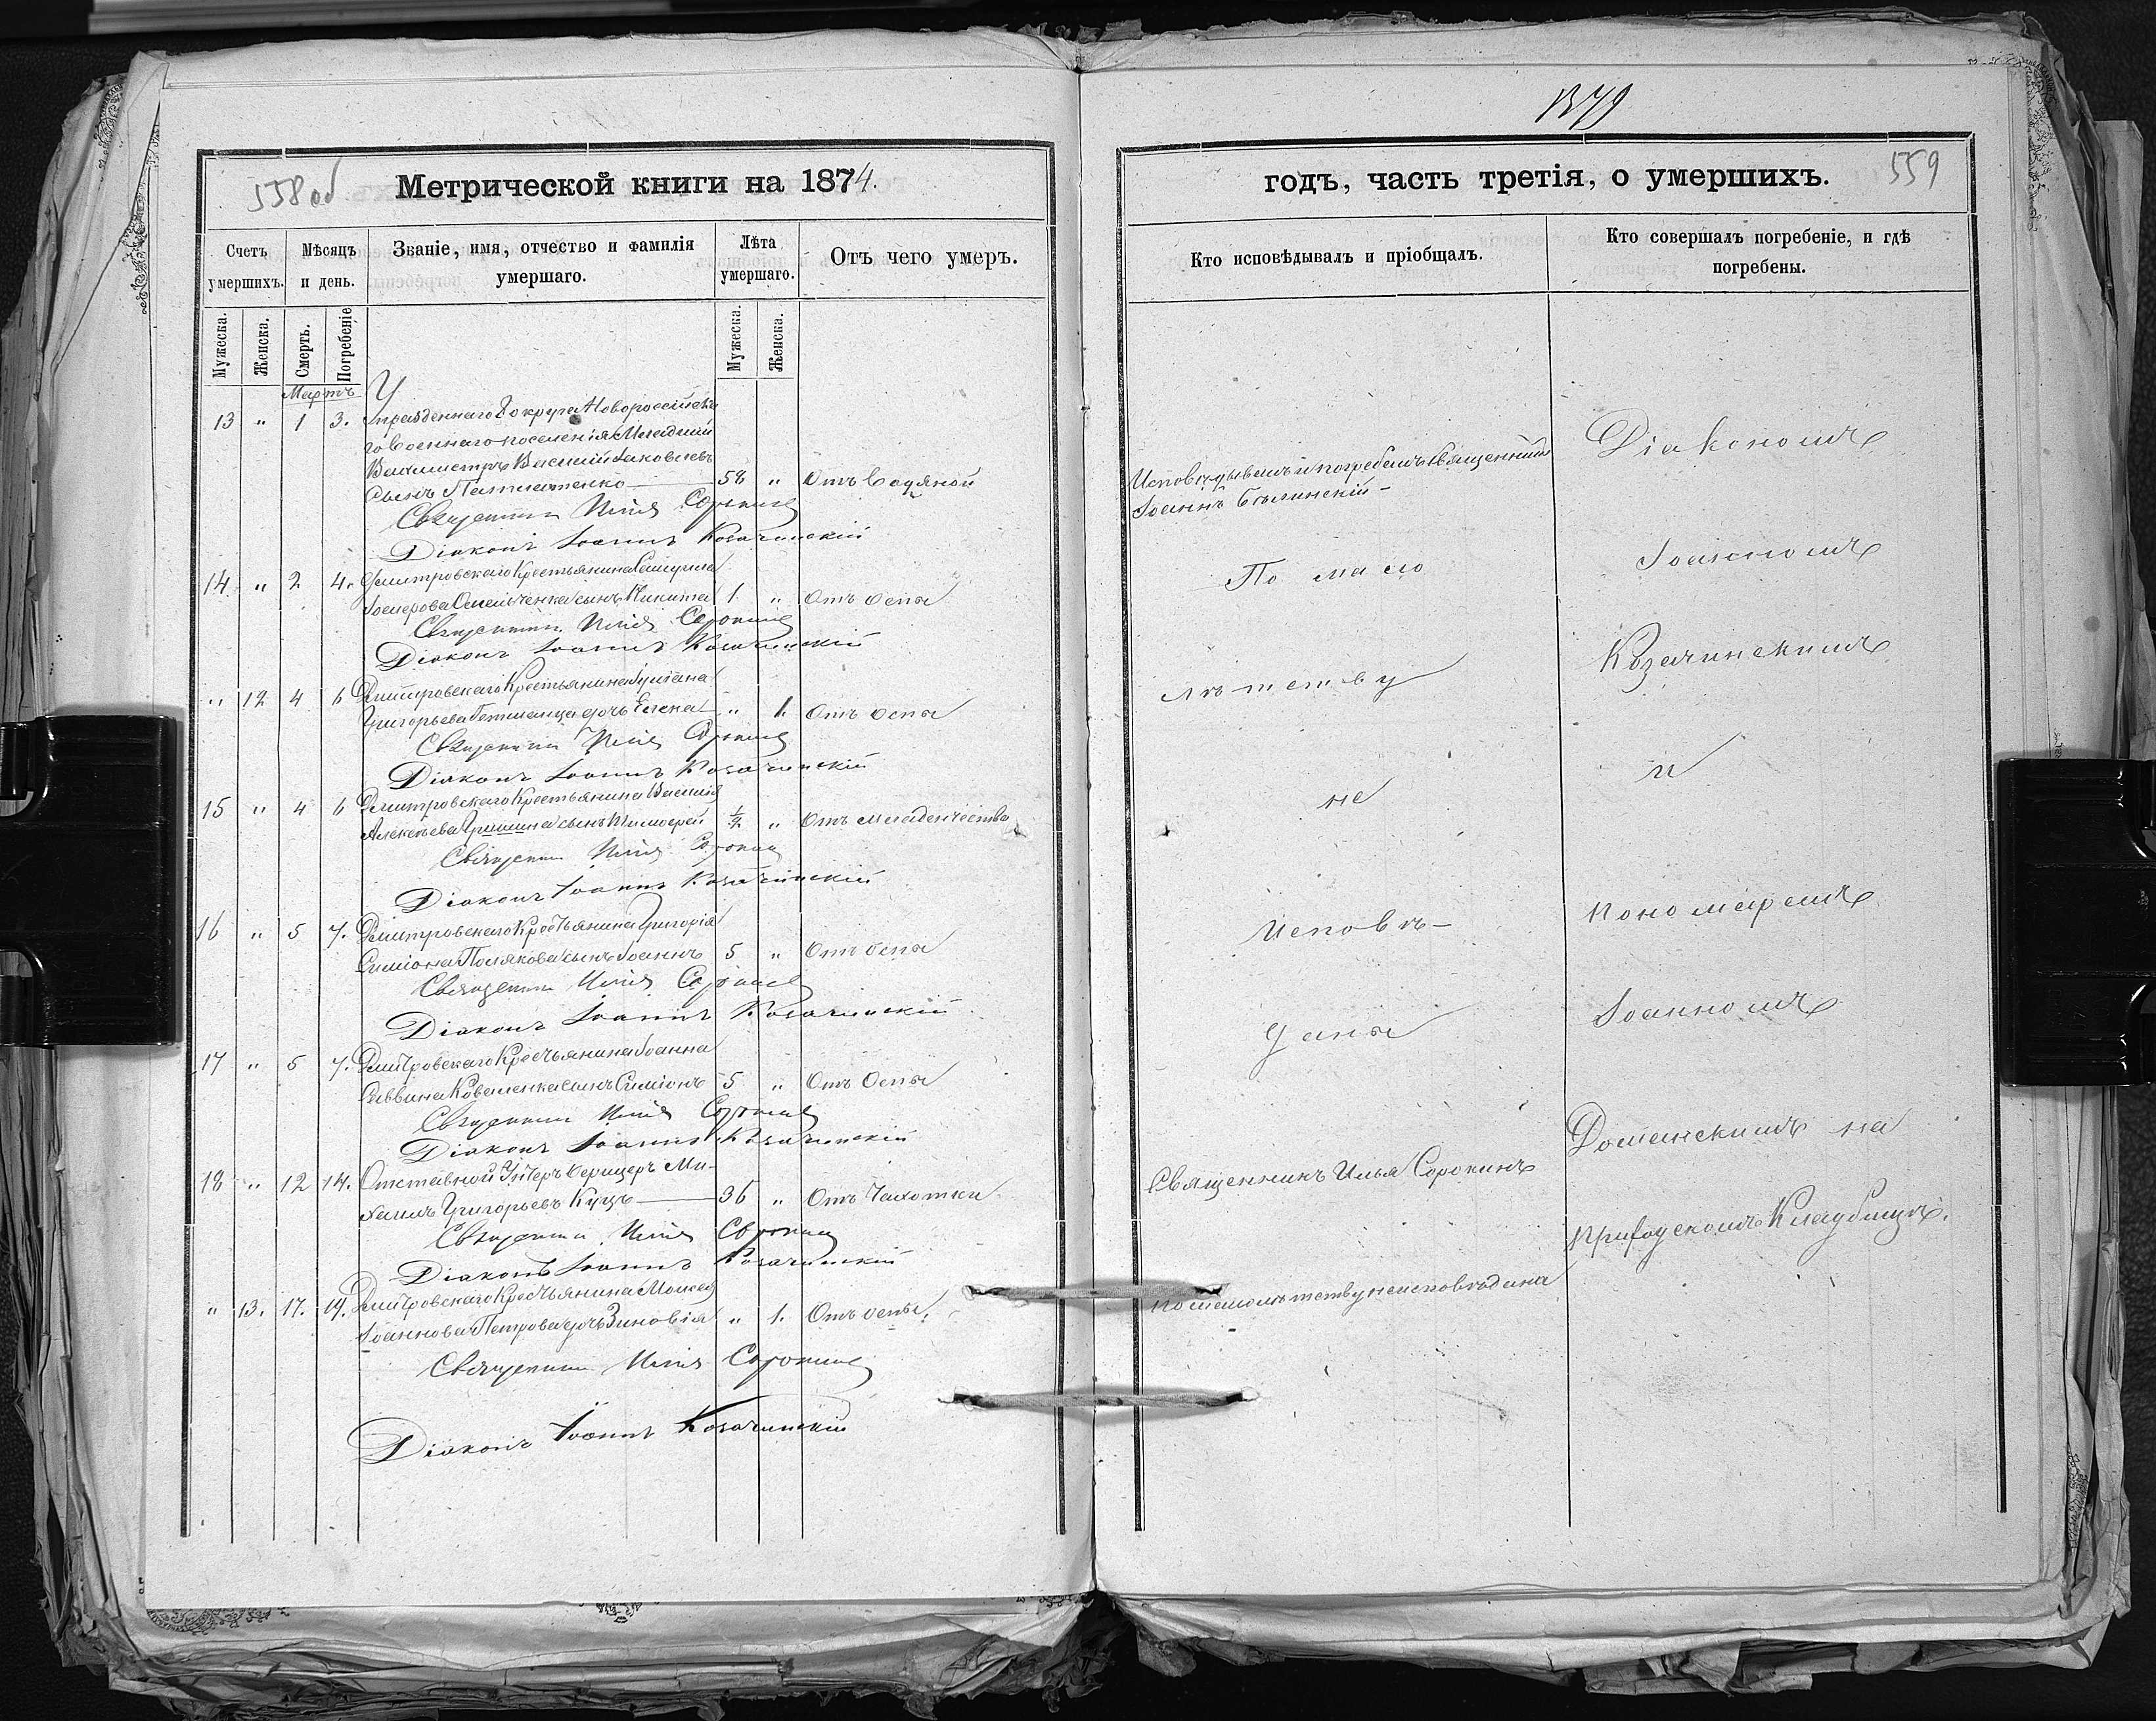 558 об
Метрической книги на 1874.
Счетъ умершихъ.
Мѣсяцъ и день.
Званіе, имя, отчество и фамилія умершаго.
Лѣта умершаго.
Отъ чего умеръ.
Мужеска.
Женска.
Смерть.
Погребеніе
Мужеска.
Женска.
Мартъ
13 " 1 3. Упраздненаго 8 округа Новороссійска
го Военнаго поселенія Младшій
Вахмистръ Василій Іаковлевъ
Сынъ 58 " Отъ водяной
Священникъ Илія Сорокинъ
Діаконъ Іоаннъ Козачинскій
14 " 2 4. Дмитровскаго Крестьянина Самуила
Омельченка сынъ Никита 1 " Отъ оспы
Священникъ Илія Сорокинъ
Діаконъ Іоаннъ Козачинскій
" 12 4 6 Дмитровскаго Крестьянина
Григорьева Гетманца дочь Елена " 1. Отъ оспы
Священникъ Илія Сорокинъ
Діаконъ Іоаннъ Козачинскій
15 " 4 6 Дмитровскаго Крестьянина Василія
Алексѣева Гришина сынъ Тимоѳей ½ " Отъ младенчества
Священникъ Илія Сорокинъ
Діаконъ Іоаннъ Козачинскій
16 " 5 7. Дмитровскаго Крестьянина Григорія
Симіона Полякова сынъ Іоаннъ 5 " Отъ оспы
Священникъ Илія Сорокинъ
Діаконъ Іоаннъ Козачинскій
17 " 5 7. Дмитровскаго Крестьянина Іоанна
Саввина Коваленка сынъ Симіонъ 5 " Отъ Оспы
Священникъ Илія Сорокинъ
Діаконъ Іоаннъ Козачинскій
18 " 12 14. Отставной Унтеръ Офицеръ Ми-
хаилъ Григорьевъ Куцъ 36 " Отъ Чахотки
Священникъ Илія Сорокинъ
Діаконъ Іоаннъ Козачинскій
" 13. 17. 19. Дмитровскаго Крестьянина Моисея
Іоаннова Петрова дочь Зиновія " 1. Отъ оспы.
Священникъ Илія Сорокинъ
Діаконъ Іоаннъ Козачинскій
1379
годъ, часть третія, о умершихъ.
559
Кто исповѣдывалъ и пріобщалъ.
Кто совершалъ погребеніе, и гдѣ погребены.
Исповѣдывалъ и погребалъ Священникъ
Іоаннъ
По мало
лѣтству
не
исповѣ-
даны
Священникъ Илья Сорокинъ
По малолѣтству неисповѣдана
Діакономъ
Іоанномъ
Козачинскимъ
и
пономаремъ
Іоанномъ
Доманскимъ на
приходскомъ Кладбищѣ.